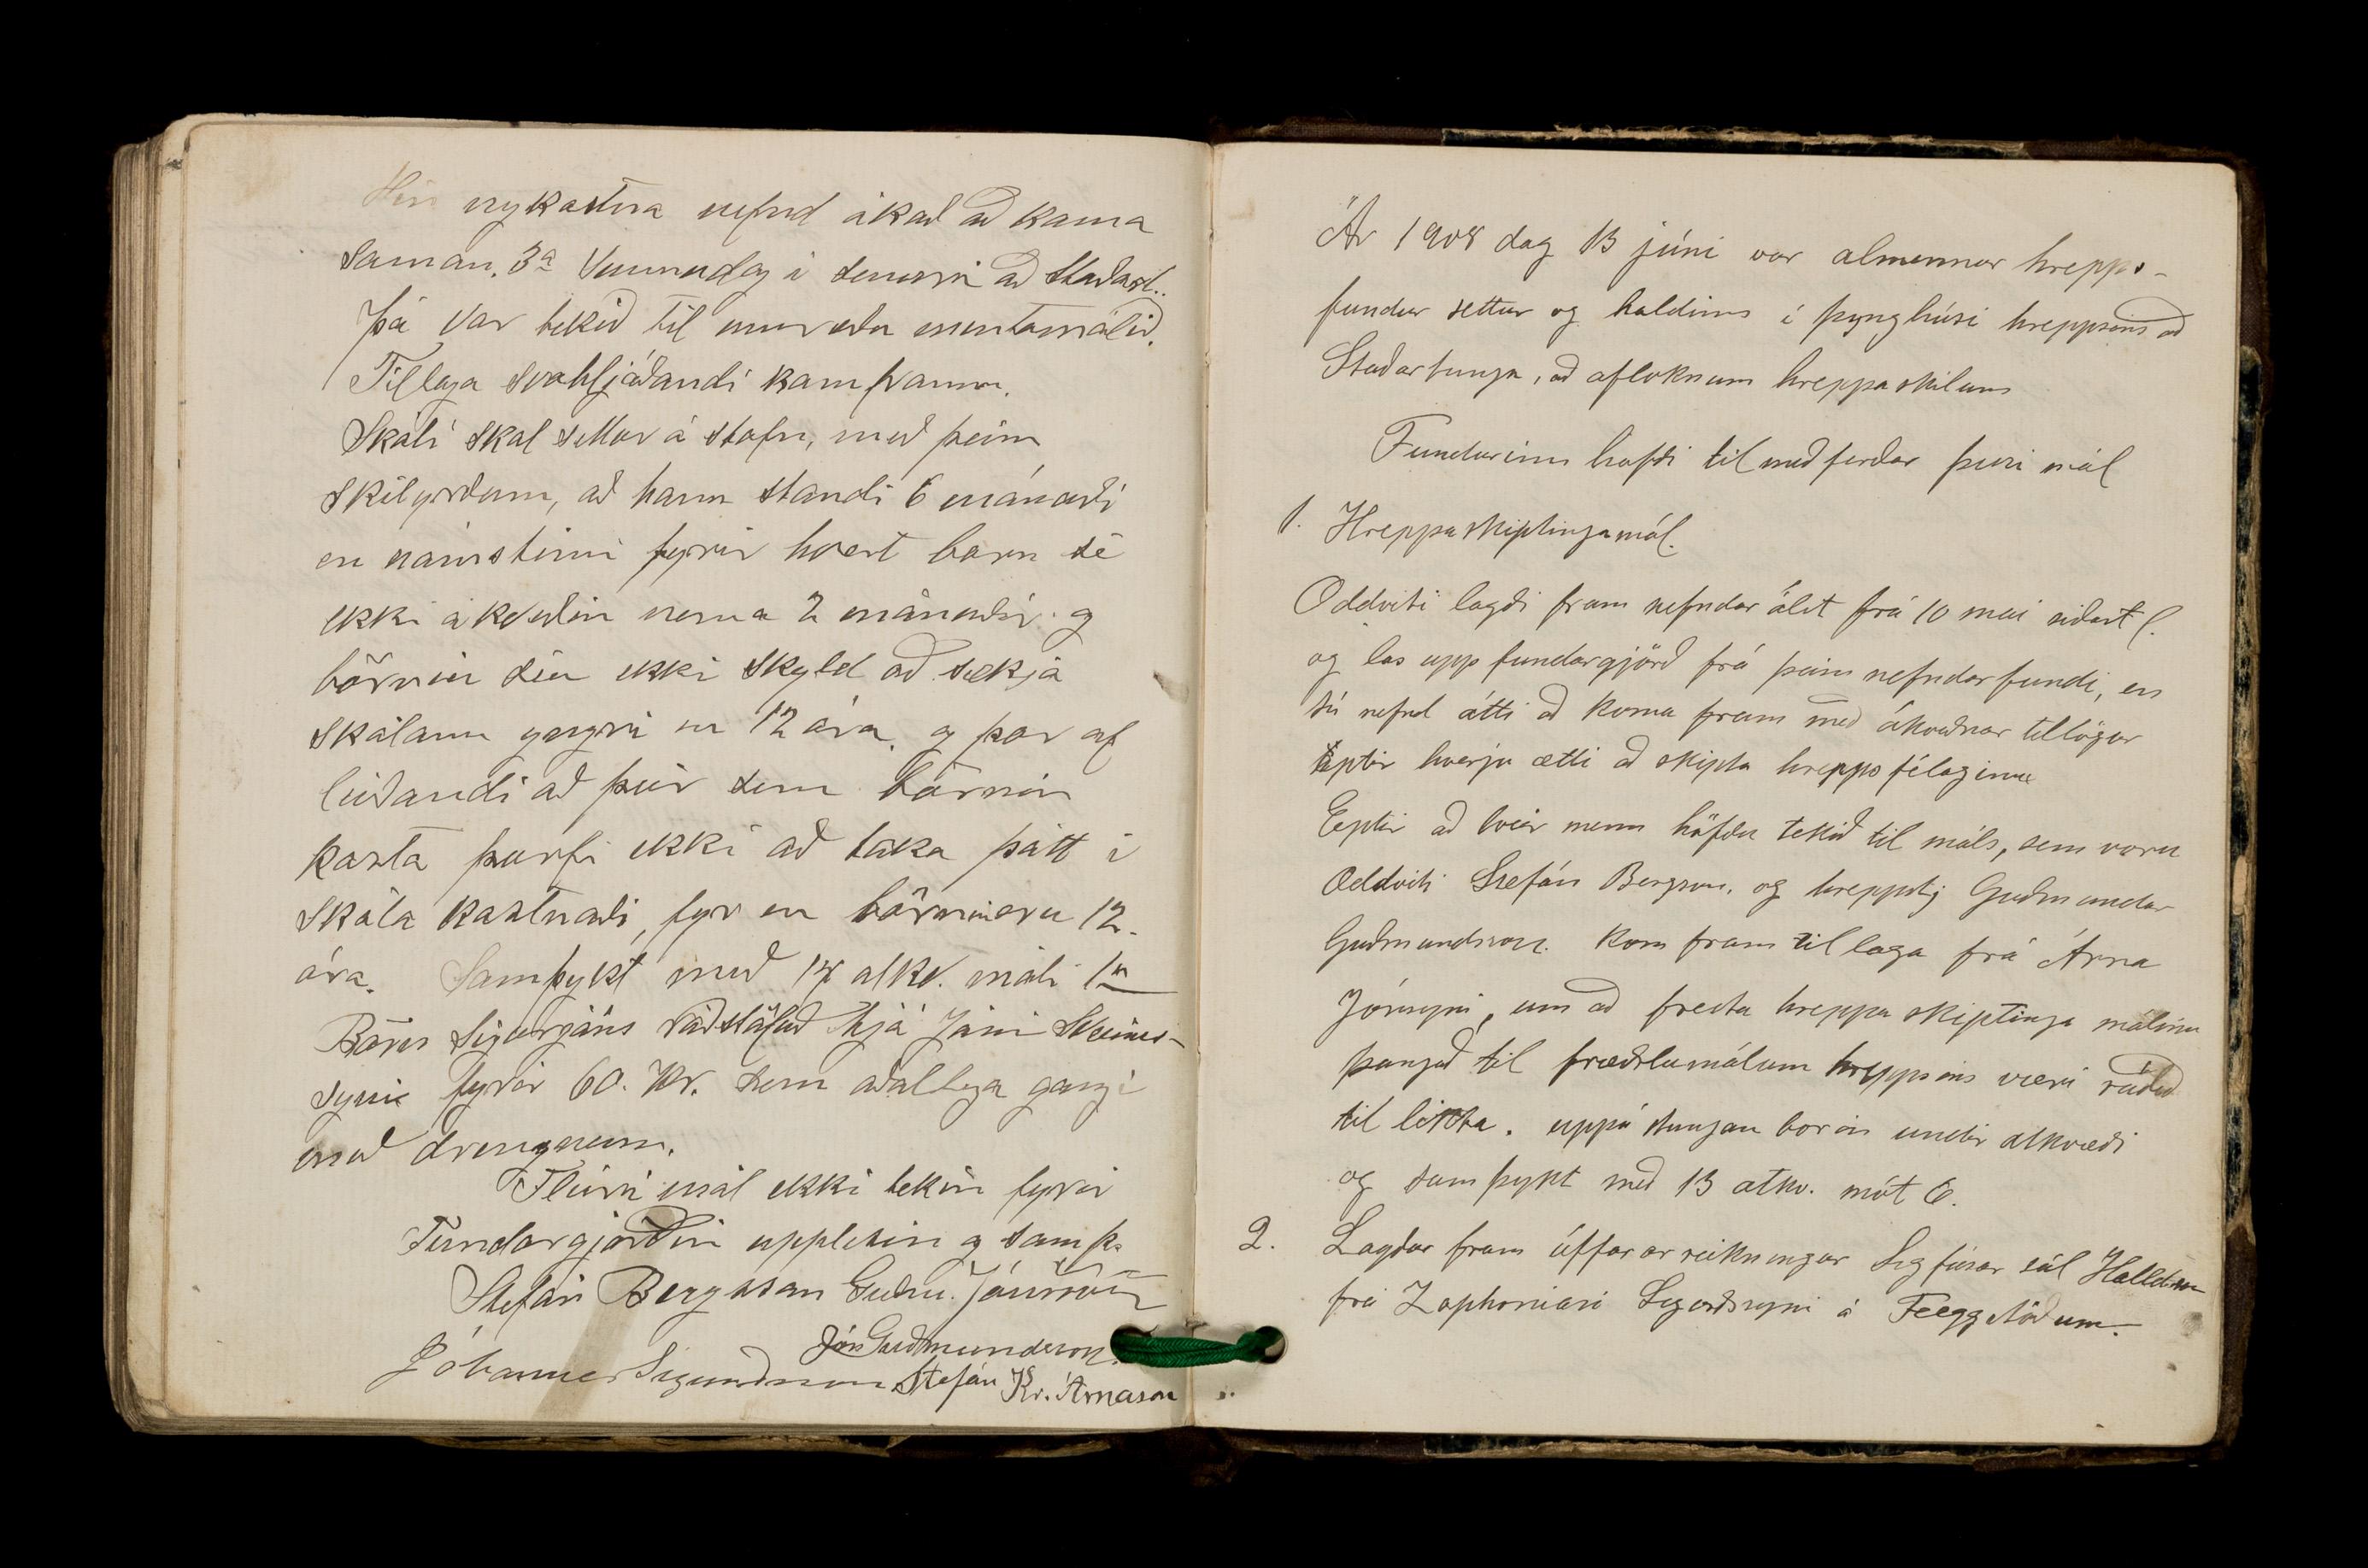 Hin nykostna nefnd ákað að koma
saman. 3a Sunnudag í sumri að Staðart..
Þá var tekið til umræðu mentamálið.
Tillaga svohljóðandi kom framm.
Skóli skal settur á stofn, með þeim
skilyrðum, að hann standi 6 mánaði
en námstími fyrir hvert barn sé
ekki ákveðin nema 2 mánaðir og
börnin séu ekki skyld að sækja
skólann yngri en 12 ára, og þar af
leiðandi að þeir sem börnin
kosta þurfi ekki að taka þátt í
skóla kostnaði, fyr en börnin eru 12.
ára. Samþykt með 14 atkv. móti 1n
Barn Sigurjóns ráðstafað hjá Jóni Sveins-
syni fyrir 60. Kr. sem aðallega gangi
með drengnum.
Fleiri mál ekki tekin fyrir
Fundargjörðin upplesin og samþ.
Stefán Bergsson Guðm. Jónsson
Jón Guðmundsson.
Jóhannes Sigurðsson Stefán Kr. Árnason
Ár 1908 dag 13 júni var almennur hrepps-
fundur settur og haldinn í þynghúsi hreppsins að
Staðartunga, að afloknum hreppaskilum
Fundurinn hafði til meðferðar þessi mál
1. Hreppaskiptingamál.
Oddviti lagði fram nefndar álit frá 10 mai siðast l.
og las upp fundargjörð frá þeim nefndarfundi, en
sú nefnd átti að koma fram með ákveðnar tillögur
eptir hverju ætti að skipta hreppsfélaginu
Eptir að tveir menn höfðu tekið til máls, sem voru
Oddviti Stefán Bergson. og hreppstj Guðmundur
Guðmundsson. kom fram tillaga frá Árna
Jónsyni, um að fresta hreppa skiptinga málinu
þangað til fræðslumálum hreppsins væri ráðið
til likta. uppástungan borin undir atkvæði
og samþykt með 13 atkv. mót 6.
2. Lagður fram útfarar reikningur Sigfúsar sál Halldórss
frá Zophoniasi Sigurðssyni á Féeggstöðum.